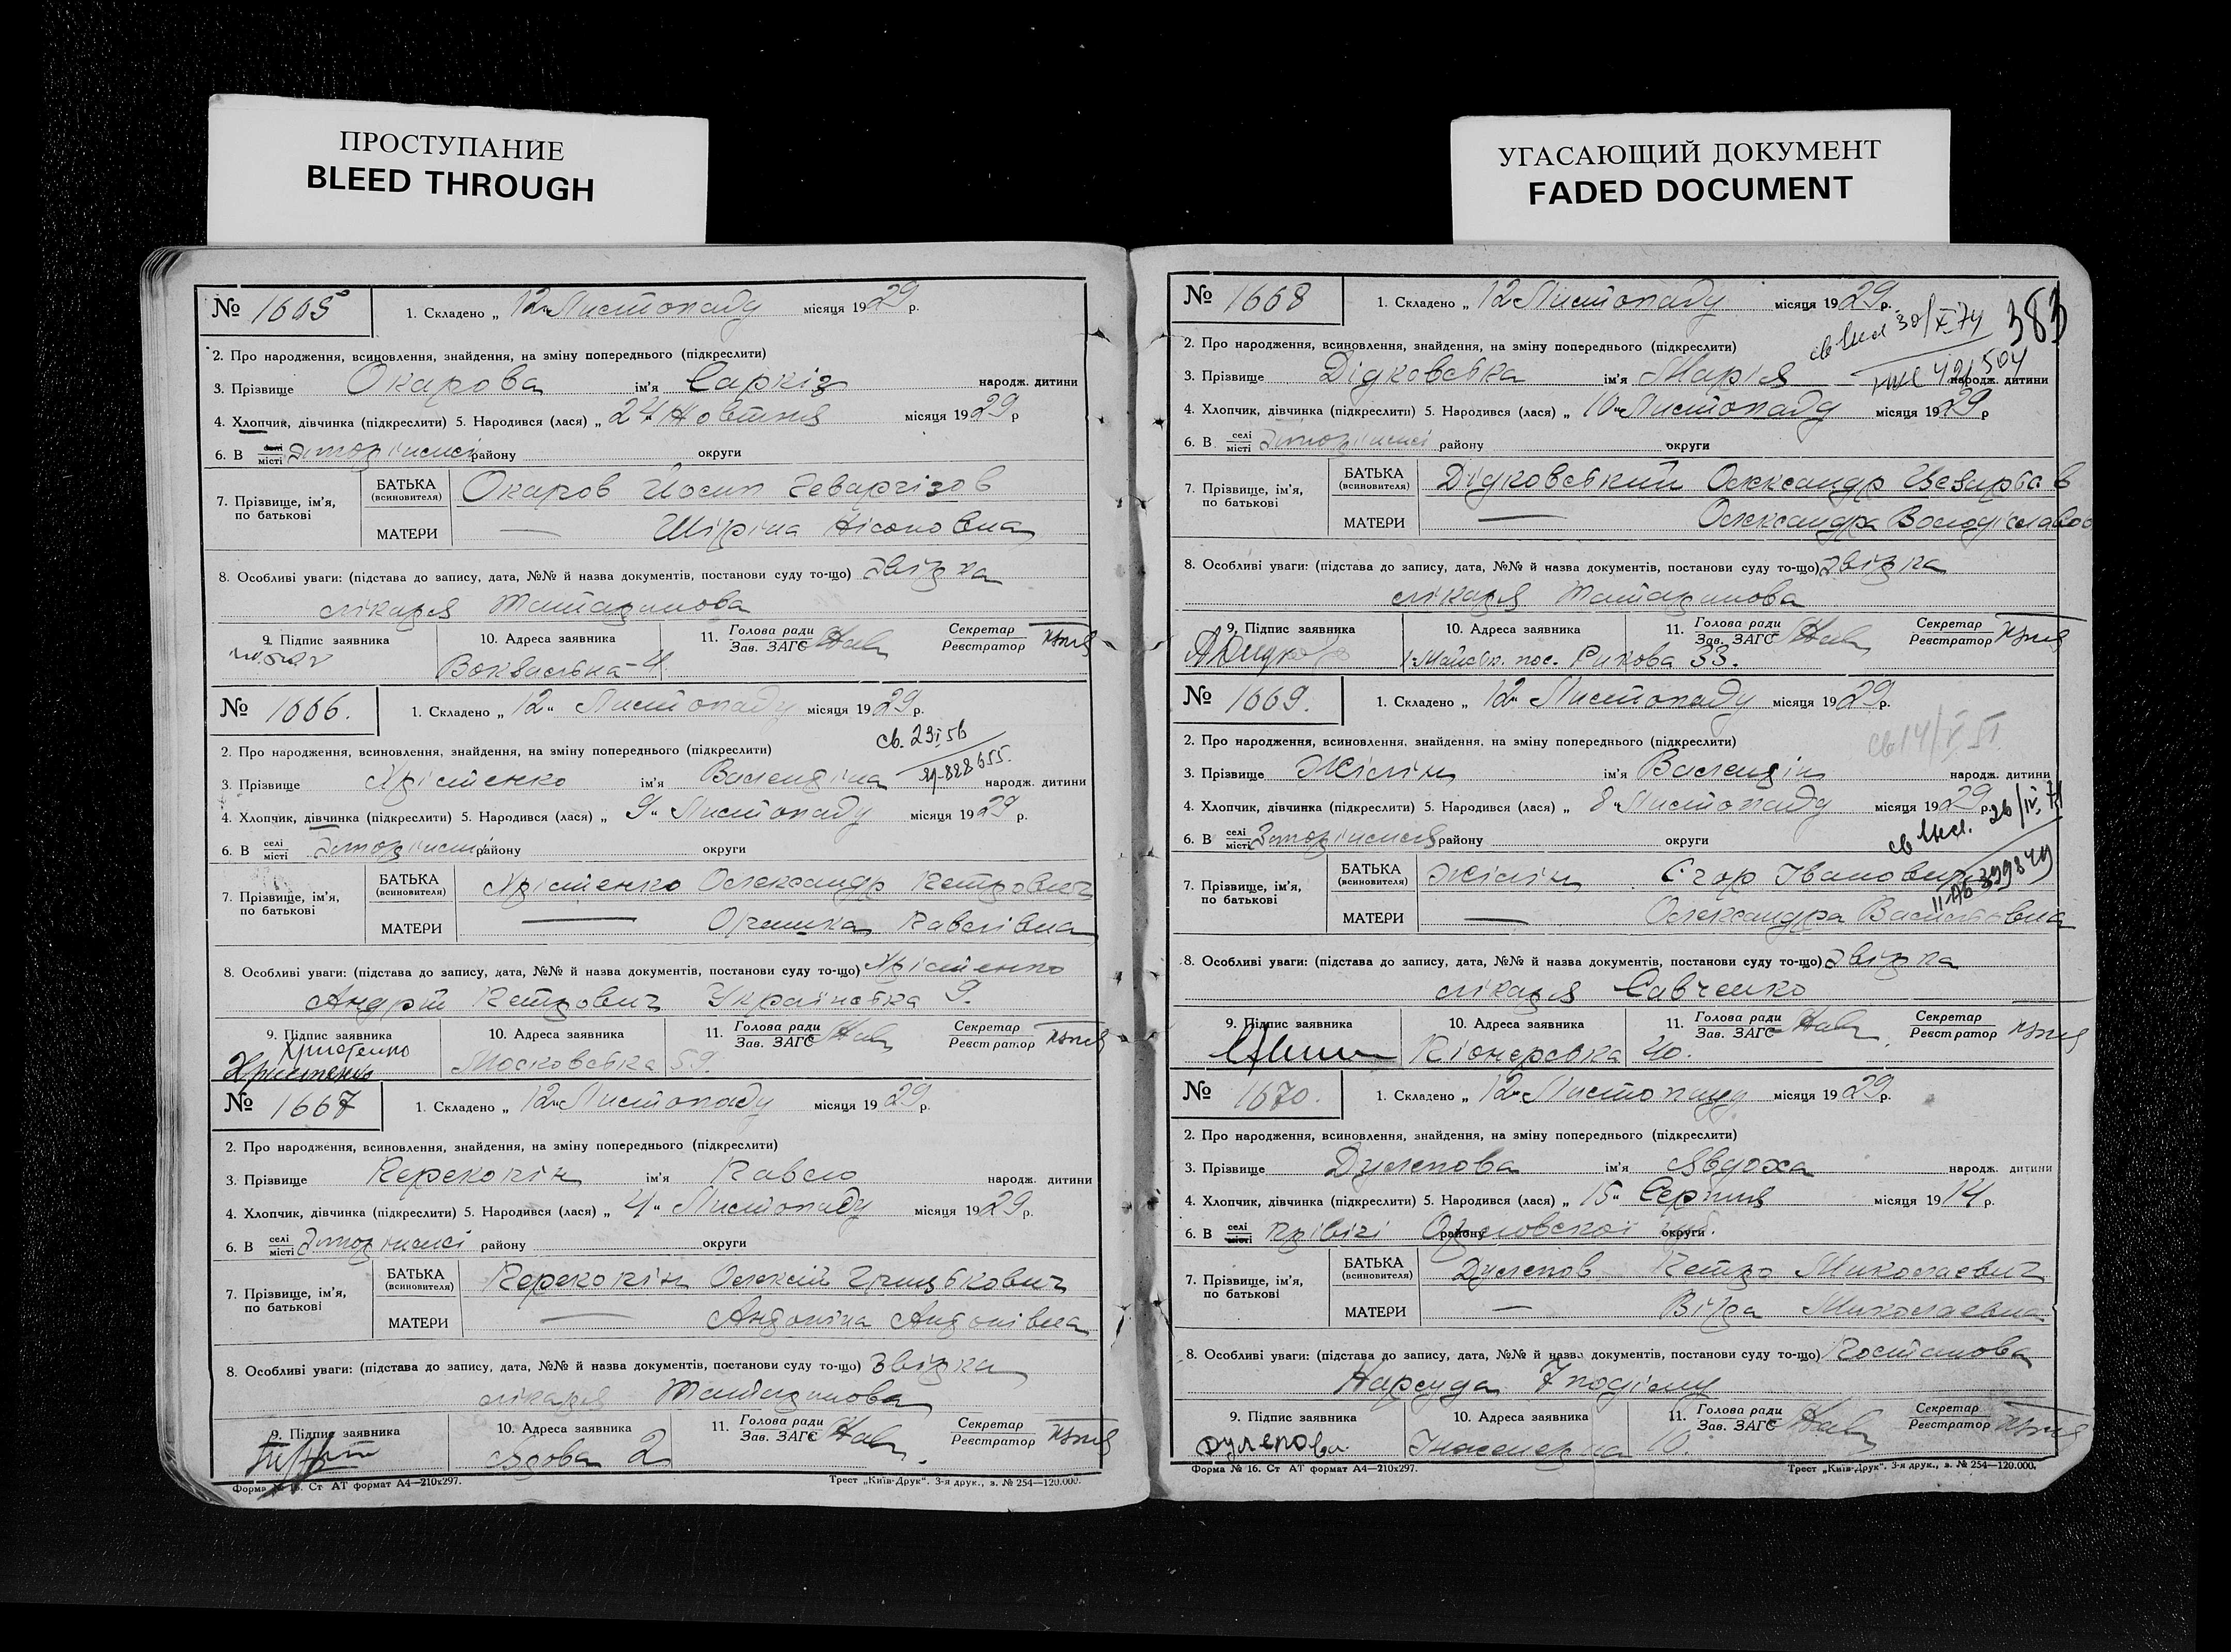 ПРОСТУПАНИЕ
BLEED THROUGH
УГАСАЮЩИЙ ДОКУМЕНТ
FADED DOCUMENT
№ 1665 1. Складено „ 12 " Листопаду місяця 1929 р.
2. Про народження, всиновлення, знайдення, на зміну попереднього (підкреслити)
3. Прізвище Окарова ім'я Саркіз народж. дитини
4. Хлопчик, дівчинка (підкреслити) 5. Народився (лася) „ 24 Новтня місяця 1929 р
6. В селі місті району округи
7. Прізвище, ім'я, по батькові
БАТЬКА (всиновителя) Окаров Йосип Геваргізов
МАТЕРИ — Шіріна Нісоновна
8. Особливі уваги: (підстава до запису, дата, №№ й назва документів, постанови суду то-що) звідка
лікаря
9. Підпис заявника 10. Адреса заявника 11. Голова ради Зав. ЗАГС Секретар Реєстратор
4
№ 1666. 1. Складено „ 12 " Листопаду місяця 1929 р.
св. 23 I 56
2. Про народження, всиновлення, знайдення, на зміну попереднього (підкреслити)
828655.
3. Прізвище Хрістенко ім'я Валендіна народж. дитини
4. Хлопчик, дівчинка (підкреслити) 5. Народився (лася) „ 9 " Листопаду місяця 1929 р.
6. В селі місті району округи
7. Прізвище, ім'я, по батькові
БАТЬКА (всиновителя) Хрістенко Олександр Петрович
МАТЕРИ — Павлівна
8. Особливі уваги: (підстава до запису, дата, №№ й назва документів, постанови суду то-що) Хрістенко
Андрій Петрович Українська 9.
9. Підпис заявника 10. Адреса заявника 11. Голова ради Зав. ЗАГС Секретар Реєстратор
Христенко
Христенко Московська 59.
№ 1667 1. Складено „ 12 " Листопаду місяця 1929 р.
2. Про народження, всиновлення, знайдення, на зміну попереднього (підкреслити)
3. Прізвище Перекопін ім'я Павло народж. дитини
4. Хлопчик, дівчинка (підкреслити) 5. Народився (лася) „ 4 " Листопаду місяця 1929 р.
6. В селі місті району округи
7. Прізвище, ім'я, по батькові
БАТЬКА (всиновителя) Перекопін Олексій
МАТЕРИ — Андоніна Андонівна
8. Особливі уваги: (підстава до запису, дата, №№ й назва документів, постанови суду то-що) звідка
лікаря
9. Підпис заявника 10. Адреса заявника 11. Голова ради Зав. ЗАГС Секретар Реєстратор
Садова 2
Форма № 16. Ст АТ формат А4—210х297. Трест „Київ-Друк". 3-я друк., з. № 254—120.000.
№ 1668 1. Складено „ 12 " Листопаду місяця 1929 р.
383
30/X 74
2. Про народження, всиновлення, знайдення, на зміну попереднього (підкреслити)
3. Прізвище Дідковська ім'я Марія народж. дитини
4. Хлопчик, дівчинка (підкреслити) 5. Народився (лася) „ 10 " Листопаду місяця 1929 р
6. В селі місті району округи
7. Прізвище, ім'я, по батькові
БАТЬКА (всиновителя) Дідковський Олександр
МАТЕРИ — Олександра
8. Особливі уваги: (підстава до запису, дата, №№ й назва документів, постанови суду то-що) звідка
лікаря
9. Підпис заявника 10. Адреса заявника 11. Голова ради Зав. ЗАГС Секретар Реєстратор
пос. Рикова 33.
№ 1669. 1. Складено „ 12 " Листопаду місяця 1929 р.
2. Про народження, всиновлення, знайдення, на зміну попереднього (підкреслити)
3. Прізвище Жілін ім'я Валендін народж. дитини
4. Хлопчик, дівчинка (підкреслити) 5. Народився (лася) „ 8 " Листопаду місяця 1929 р.
6. В селі місті району округи
7. Прізвище, ім'я, по батькові
БАТЬКА (всиновителя) Жілін Єгор Іванович
399849
МАТЕРИ — Олександра Васильевна
8. Особливі уваги: (підстава до запису, дата, №№ й назва документів, постанови суду то-що) звідка
лікаря Савченко
9. Підпис заявника 10. Адреса заявника 11. Голова ради Зав. ЗАГС Секретар Реєстратор
Піонерська 40.
№ 1670. 1. Складено „ 12 " Листопаду місяця 1929 р.
2. Про народження, всиновлення, знайдення, на зміну попереднього (підкреслити)
3. Прізвище Дулепова ім'я Явдоха народж. дитини
4. Хлопчик, дівчинка (підкреслити) 5. Народився (лася) „ 15 " Серпня місяця 1914 р.
6. В селі місті району округи
7. Прізвище, ім'я, по батькові
БАТЬКА (всиновителя) Дулепов Петро Миколаевич
МАТЕРИ — Віра Миколаевна
8. Особливі уваги: (підстава до запису, дата, №№ й назва документів, постанови суду то-що) Постанова
Нарсуда 7
9. Підпис заявника 10. Адреса заявника 11. Голова ради Зав. ЗАГС Секретар Реєстратор
Дулепова 10.
Форма № 16. Ст АТ формат А4—210х297. Трест „Київ-Друк". 3-я друк., з. № 254—120.000.